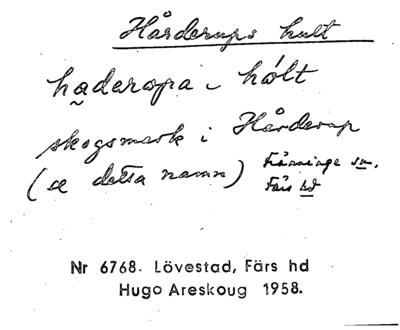 Hårderups hult
hạderopa - hólt
skogsmark i Hårderup
(se detta namn) Fränninge sn.
Färs hd
Nr 6768. Lövestad, Färs hd
Hugo Areskoug 1958.